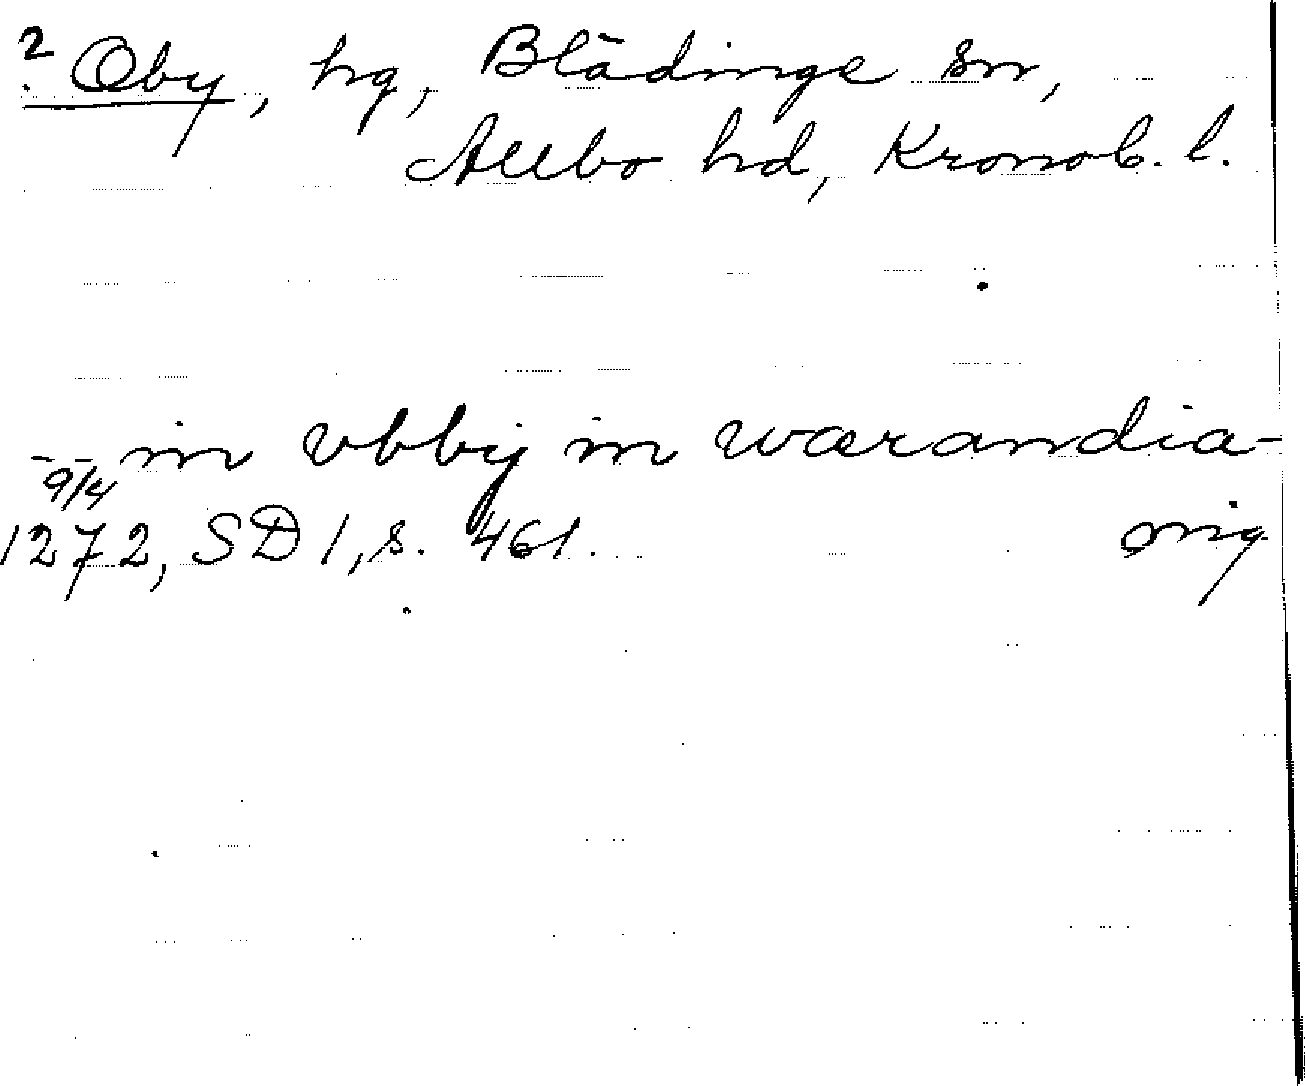 ? Oby, hg, Blädinge sn,
Allbo hd, Kronob. l.
in vbby in wærandia -
9/4 1272, SD 1, s. 461. orig